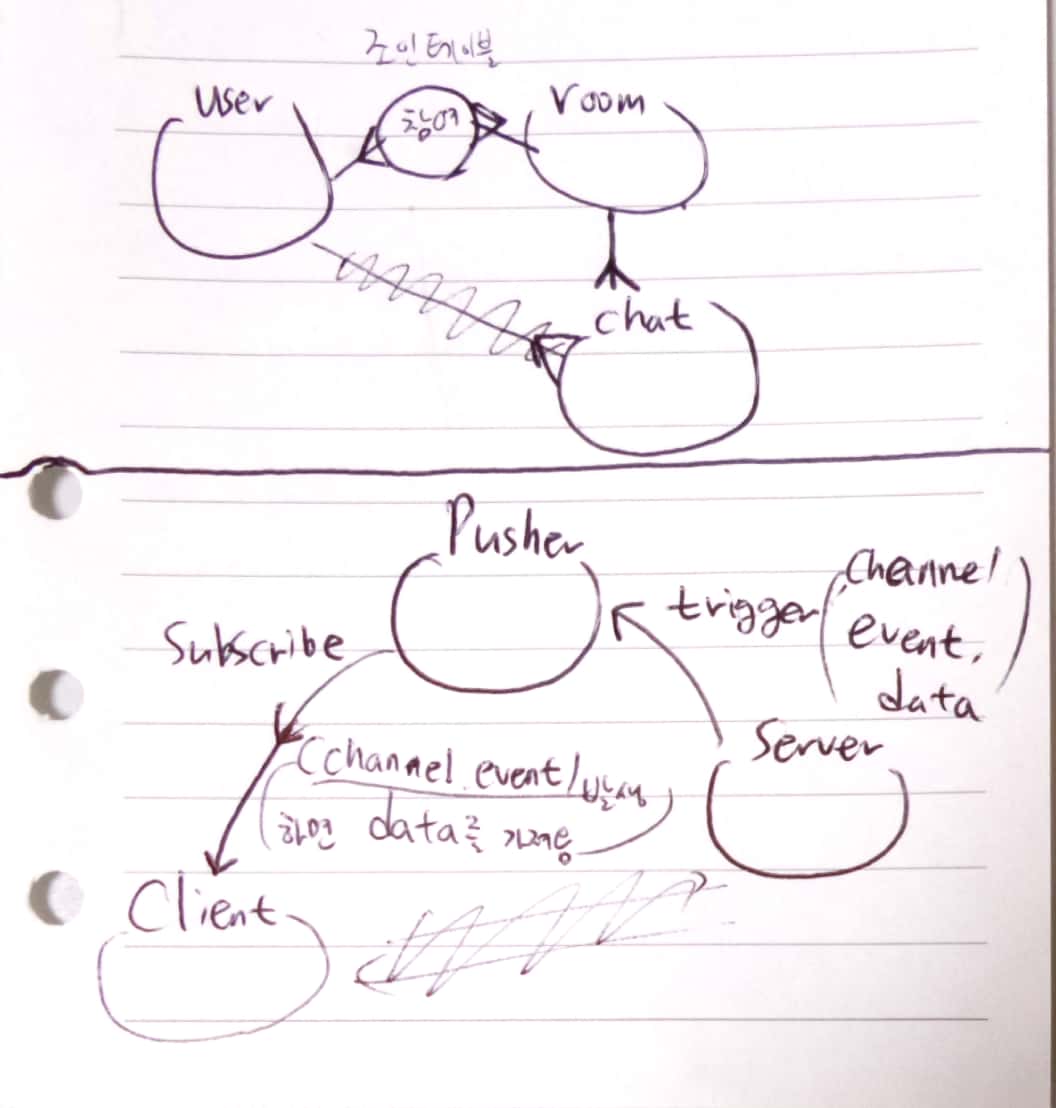 조인테이블
user
참여
room
chat
Pusher
Subscribe
trigger(channel
event.
data)
Server
(channel event/발생
하면 data를 가져옴)
Client